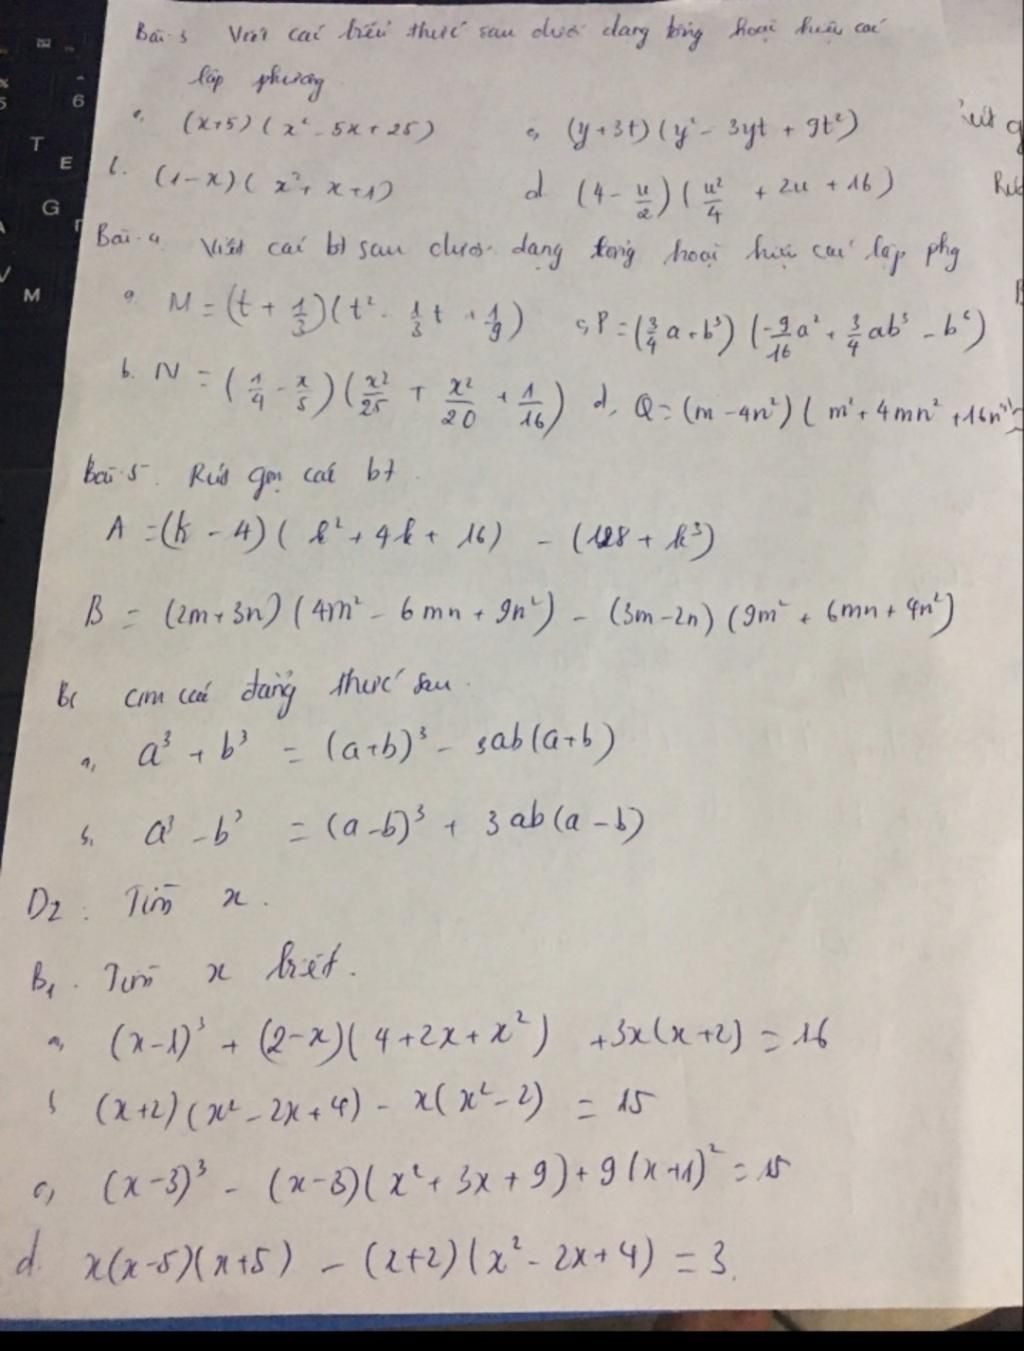 Bài 3 Viết các biểu thức sau dưới dạng tổng hoặc hiệu các
lập phương
a. (x+5)(x² - 5x + 25) c, (y + 3t)(y² - 3yt + 9t²)
b. (1-x)(x² + x + 1) d (4 - u/2)(u²/4 + 2u + 16)
Bài 4 Viết các bt sau dưới dạng tổng hoặc hiệu các lập phg
a. M = (t + 1/3)(t² - 1/3 t + 1/9) c, P = (3/4 a + b³)(-9/16 a² + 3/4 ab³ - b⁶)
b. N = (1/4 - x/5)(x²/25 + x²/20 + 1/16) d, Q = (m - 4n²)(m² + 4mn² + 16n⁴)
Bài 5. Rút gọn các bt
A = (k - 4)(k² + 4k + 16) - (128 + k³)
B = (2m + 3n)(4m² - 6mn + 9n²) - (3m - 2n)(9m² + 6mn + 4n²)
B6 cm các đẳng thức sau.
a, a³ + b³ = (a+b)³ - 3ab(a+b)
b, a³ - b³ = (a-b)³ + 3ab(a-b)
D2: Tìm x.
B1. Tìm x biết.
a, (x-1)³ + (2-x)(4 + 2x + x²) + 3x(x+2) = 16
b (x+2)(x² - 2x + 4) - x(x² - 2) = 15
c, (x-3)³ - (x-3)(x² + 3x + 9) + 9(x+1)² = 15
d. x(x-5)(x+5) - (x+2)(x² - 2x + 4) = 3.
6
T
E
G
M